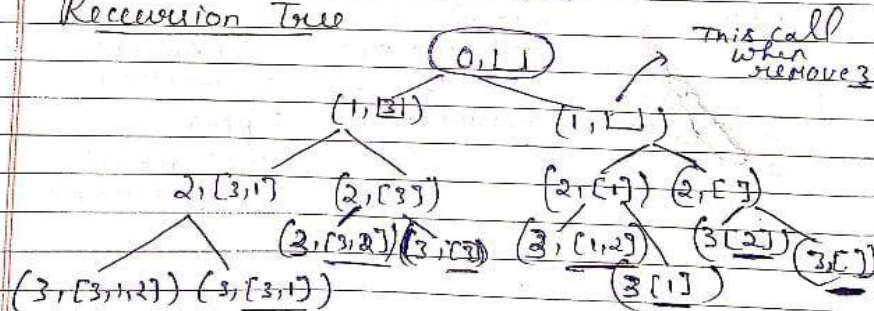 Recursion Tree
0, [ ]
This call
when
remove 3
(1, [3])
(1, [ ])
2, [3,1]
(2, [3])
(2, [1])
(2, [ ])
(2, [3,2])
(3, [3])
(3, [1,2])
(3 [2])
(3, [ ])
(3, [3,1,2])
(3, [3,1])
(3 [1])